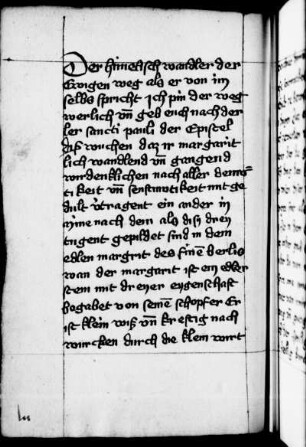 Der himelisch wandler der
Ewigen weg als er von im
selbs spricht Ich pin der weg
werlich vñ geb euch nach der
ler sancti pauli der Epistel
diß wuchen daz ir
lich wandlend vñ gangend
wirdenklichen nach aller demů-
tikeit vñ senftmůtikeit mit ge
dult vertragent ein ander in
nach dem als diß drey
tugent gepildet sind in dem
edlen margrit des
wan der margarit ist ein edler
stein mit dreyer eygenschaft
begabet von seinē schopfer Er
ist klein wiß vñ kreftig nach
wurcken durch die klein wirt